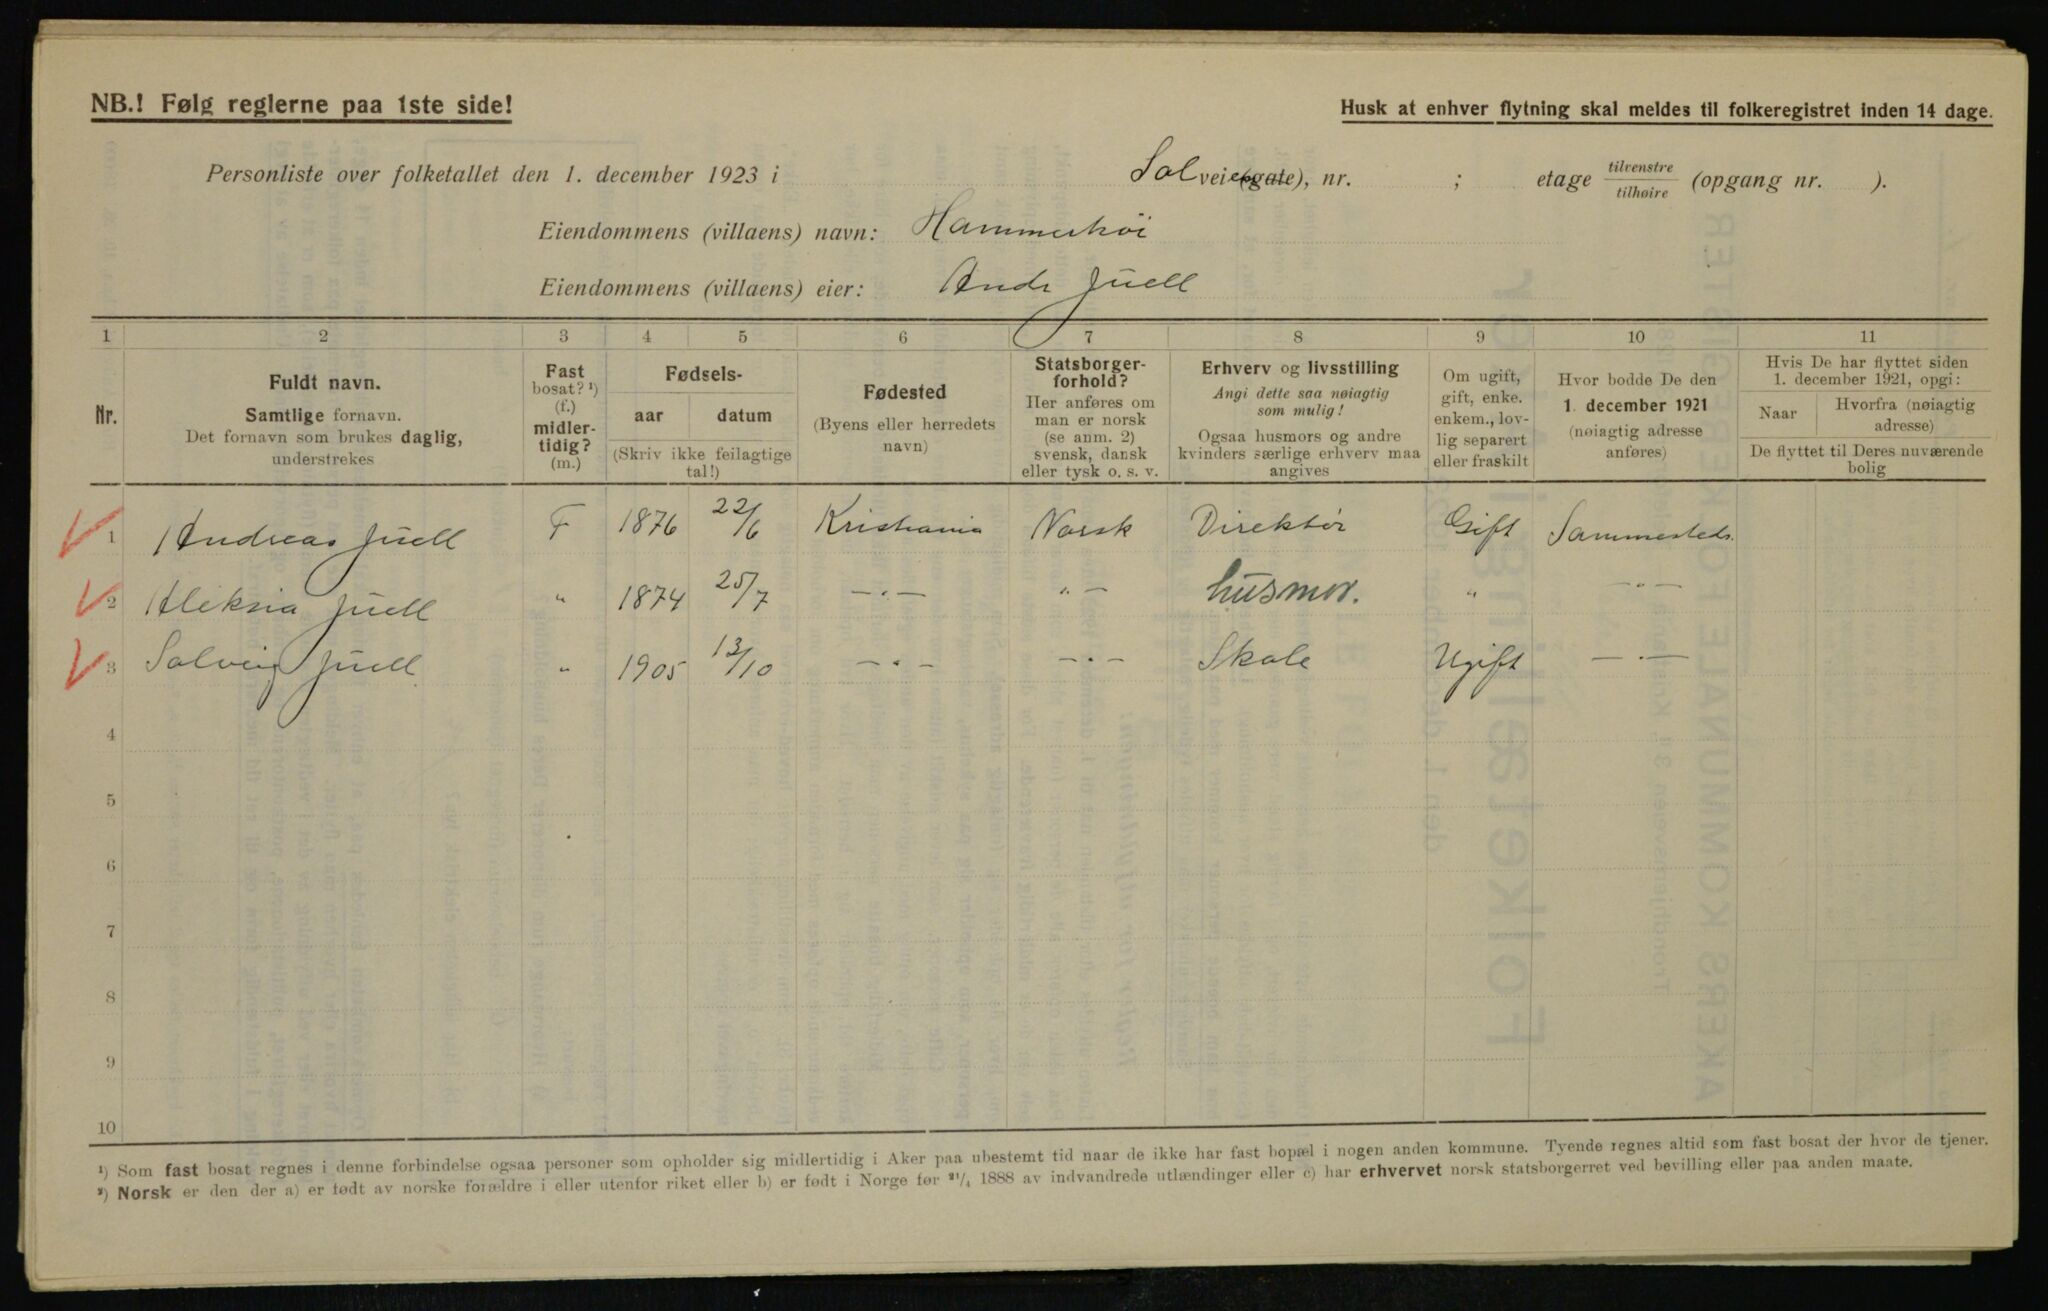 NB.! Følg reglerne paa 1ste side!
Husk at enhver flytning skal meldes til folkeregistret inden 14 dage.
Personliste over folketallet den 1. december 1923 i Solveien (gate), nr. ; etage tilvenstre / tilhøire (opgang nr. ).
Eiendommens (villaens) navn: Hammerhöi
Eiendommens (villaens) eier: Andr Juell
1 2 3 4 5 6 7 8 9 10 11
Nr.
Fuldt navn.
Samtlige fornavn.
Det fornavn som brukes daglig,
understrekes
Fast
bosat? ¹)
(f.)
midler-
tidig?
(m.)
Fødsels-
aar datum
(Skriv ikke feilagtige
tal!)
Fødested
(Byens eller herredets
navn)
Statsborger-
forhold?
Her anføres om
man er norsk
(se anm. 2)
svensk, dansk
eller tysk o. s. v.
Erhverv og livsstilling
Angi dette saa nøiagtig
som mulig!
Ogsaa husmors og andre
kvinders særlige erhverv maa
angives
Om ugift,
gift, enke.
enkem., lov-
lig separert
eller fraskilt
Hvor bodde De den
1. december 1921
(nøiagtig adresse
anføres)
Hvis De har flyttet siden
1. december 1921, opgi:
Naar
Hvorfra (nøiagtig
adresse)
De flyttet til Deres nuværende
bolig
1 Andreas Juell F 1876 22/6 Kristiania Norsk Direktør Gift Sammesteds.
2 Aleksia Juell " 1874 25/7 —„— „— husmor. " —„—
3 Solveig Juell " 1905 13/10 —„— —„— Skole Ugift —„—
4
5
6
7
8
9
10
¹) Som fast bosat regnes i denne forbindelse ogsaa personer som opholder sig midlertidig i Aker paa ubestemt tid naar de ikke har fast bopæl i nogen anden kommune. Tyende regnes altid som fast bosat der hvor de tjener.
²) Norsk er den der a) er født av norske forældre i eller utenfor riket eller b) er født i Norge før 21/4 1888 av indvandrede utlændinger eller c) har erhvervet norsk statsborgerret ved bevilling eller paa anden maate.